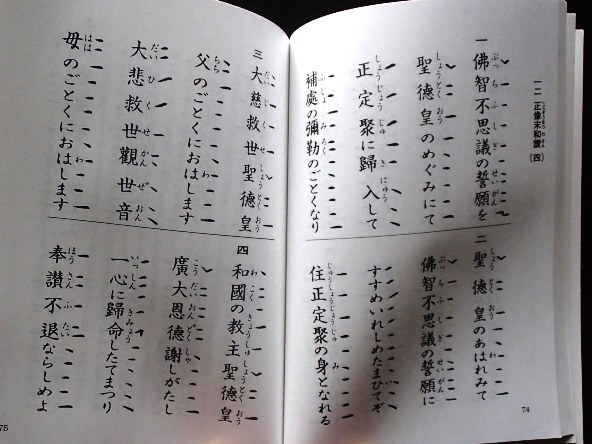 一二 正像末和讃(四)
一 佛智不思議の誓願を
聖德皇のめぐみにて
正定聚に歸入して
補處の彌勒のごとくなり
二 聖德皇のあはれみて
佛智不思議の誓願に
すすめいれしめたまひてぞ
住正定聚の身となれる
74
三 大慈救世聖德皇
父のごとくにおはします
大悲救世觀世音
母のごとくにおはします
四 和國の教主聖德皇
廣大恩德謝しがたし
一心に歸命したてまつり
奉讃不退ならしめよ
75